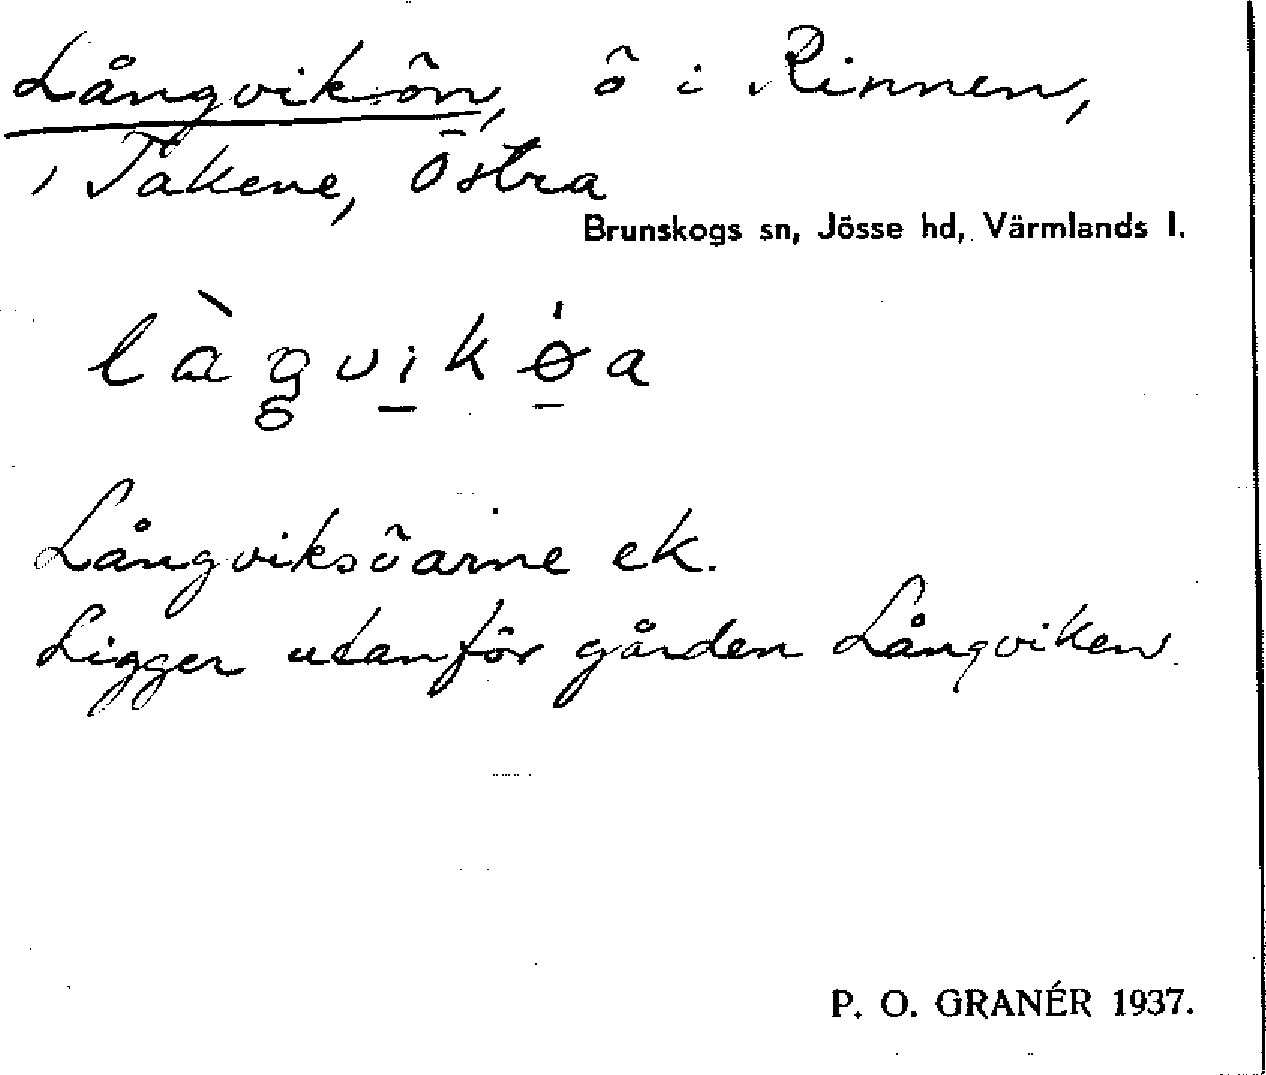 Långvikön, ö i Rinnen,
i Takene, Östra
Brunskogs sn, Jösse hd, Värmlands l.
Långviksöarne ek.
Ligger utanför gården Långviken.
P. O. GRANÉR 1937.